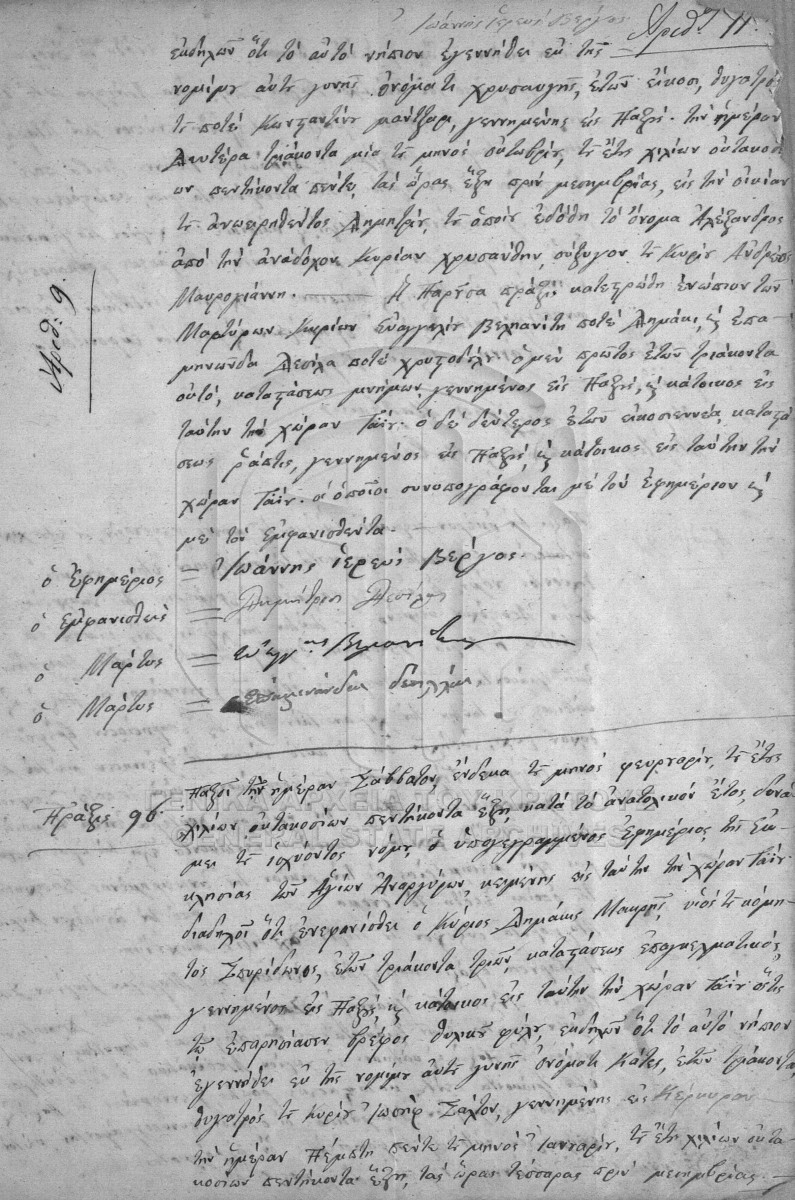 Ἰωάννης ἱερεύς Βέργος Ἀριθ. 11.
ἐκδηλῶν ὅτι τό αὐτό νήπιον ἐγεννήθει ἐκ τῆς
νομίμου αὐτοῦ γυνῆς ὀνόματι Χρυσαυγῆς, ἐτῶν εἴκοσι, θυγατρός
τοῦ ποτέ Κωνσταντίνου Μάντζαρι, γεννημένης εἰς Παξούς. τήν ἡμέραν
Δευτέρα τριάκοντα μία τοῦ μηνός ὀκτωβρίου, τοῦ ἔτους χιλίων ὀκτακοσί
ων πεντήκοντα πέντε, τάς ὥρας ἕξη πρίν μεσημβρίας, εἰς τήν οἰκίαν
τοῦ ἀνωειρηθέντος Δημητρίου, τοῦ ὁποίου ἐδόθη τό ὄνομα Ἀλέξανδρος
ἀπό τήν ἀνάδοχον Κυρίαν Χρυσάνθην, σύζυγον τοῦ Κυρίου Ἀνδρέου
Μαυρογιάννη. Ἡ Παροῦσα πράξις κατεστρώθη ἐνώπιον τῶν
Ἀριθ: 9.
Μαρτύρων Κυρίων Εὐαγγελίου Βελιανίτη ποτέ Δημάκι, καί Ἐπα-
μηνώνδα Δεσίλα ποτέ Χριστοδούλου ὁ μέν πρῶτος ἐτῶν τριάκοντα
ὀκτό, καταστάσεως μνήμων, γεννημένος εἰς Παξούς, καί κάτοικος εἰς
ταύτην τήν χώραν Γαΐου. ὁ δέ δεύτερος ἐτῶν εἰκοσιεννέα, καταστά
σεως ῥάπτις, γεννημένος εἰς Παξούς, καί κάτοικος εἰς ταύτην τήν
χώραν Γαΐου. οἱ ὁποῖοι συνυπογράφονται μέ τόν Ἐφημέριον καί
μέ τόν ἐμφανισθέντα.
ὁ Ἐφημέριος = Ἰωάννης ἱερεύς Βέργος.
ὁ ἐμφανισθείς = Δημήτριος Δεσύλας
ὁ Μάρτυς =
ὁ Μάρτυς = Ἐπαμεινώνδας Δεσύλλας
Πράξις 96.
Παξοί τήν ἡμέραν Σάββατον, ἕνδεκα τοῦ μηνός φευρουαρίου, τοῦ ἔτους
χιλίων ὀκτακοσίων πεντήκοντα ἕξη, κατά τό ἀνατολικόν ἔτος, δυνά
μει τοῦ ἰσχύοντος νόμου, ὁ ὑπογεγραμμένος Ἐφημέριος τῆς Ἐκ
κλησίας τῶν Ἁγίων Ἀναργύρων, κειμένης εἰς ταύτην τήν χώραν Γαΐου
διαδηλοῖ ὅτι ἐνεφανίσθει ὁ Κύριος Δημάκις Μακρῆς, υἱός τοῦ κόμη-
τος Σπυρίδωνος, ἐτῶν τριάκοντα τριῶν, καταστάσεως ἐπαγγελματικός,
γεννημένος εἰς Παξούς, καί κάτοικος εἰς ταύτην τήν χώραν Γαΐου ὅστις
τῶ ἐπαρησίασεν βρέφος θυλικοῦ φύλου, ἐκδηλῶν ὅτι τό αὐτό νήπιον
ἐγεννήθει ἐκ τῆς νομίμου αὐτοῦ γυνῆς ὀνόματι Κάτες, ἐτῶν τριάκοντα,
θυγατρός τοῦ Κυρίου Ἰωσήφ Σάλτον, γεννημένης εἰς Κέρκυραν
τήν ἡμέραν Πέμπτη πέντε τοῦ μηνός Ἰανουαρίου, τοῦ ἔτους χιλίων ὀκτα-
κοσίων πεντήκοντα ἕξη, τάς ὥρας τέσσαρας πρίν μεσημβρίας.
ΓΕΝΙΚΑ ΑΡΧΕΙΑ ΤΟΥ ΚΡΑΤΟΥΣ
GENERAL STATE ARCHIVES